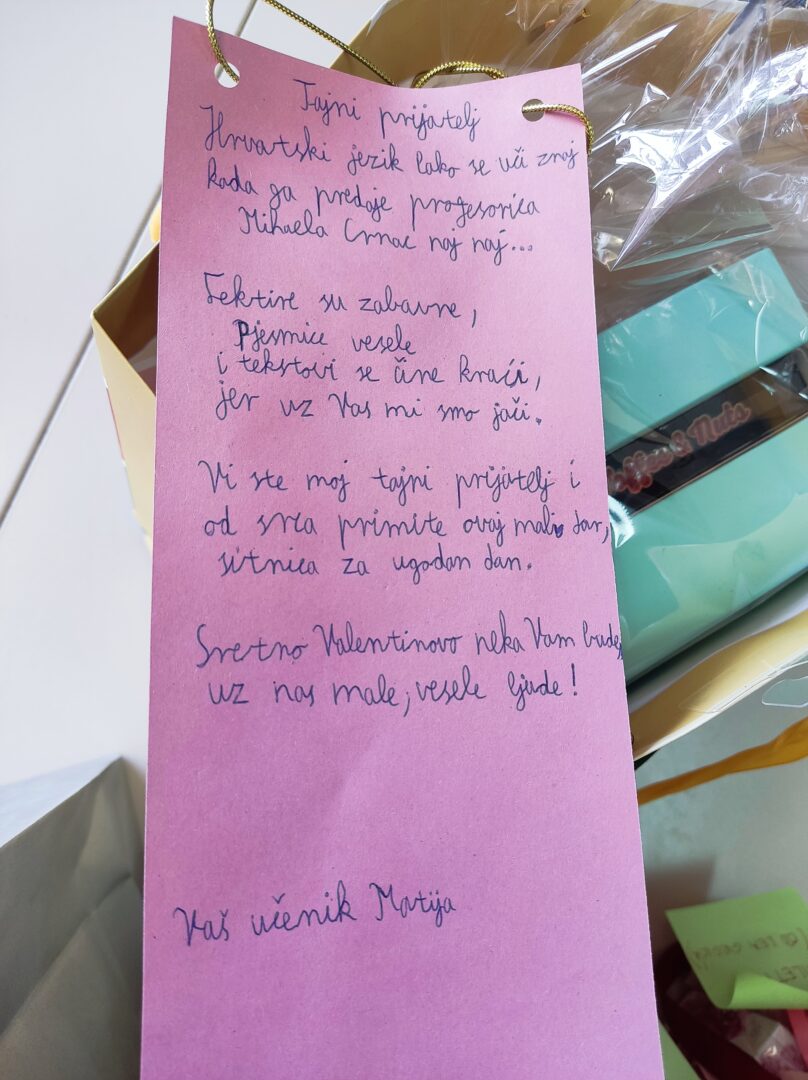 Tajni prijatelj
Hrvatski jezik lako se uči znaj
kada ga predaje profesorica
Mihaela Crnac naj naj...
Lektire su zabavne,
Pjesmice vesele
i tekstovi se čine kraći,
jer uz Vas mi smo jači.
Vi ste moj tajni prijatelj i
od srca primite ovaj mali dar,
sitnica za ugodan dan.
Sretno Valentinovo neka Vam bude,
uz nas male, vesele ljude!
Vaš učenik Matija
Toffee & Nuts